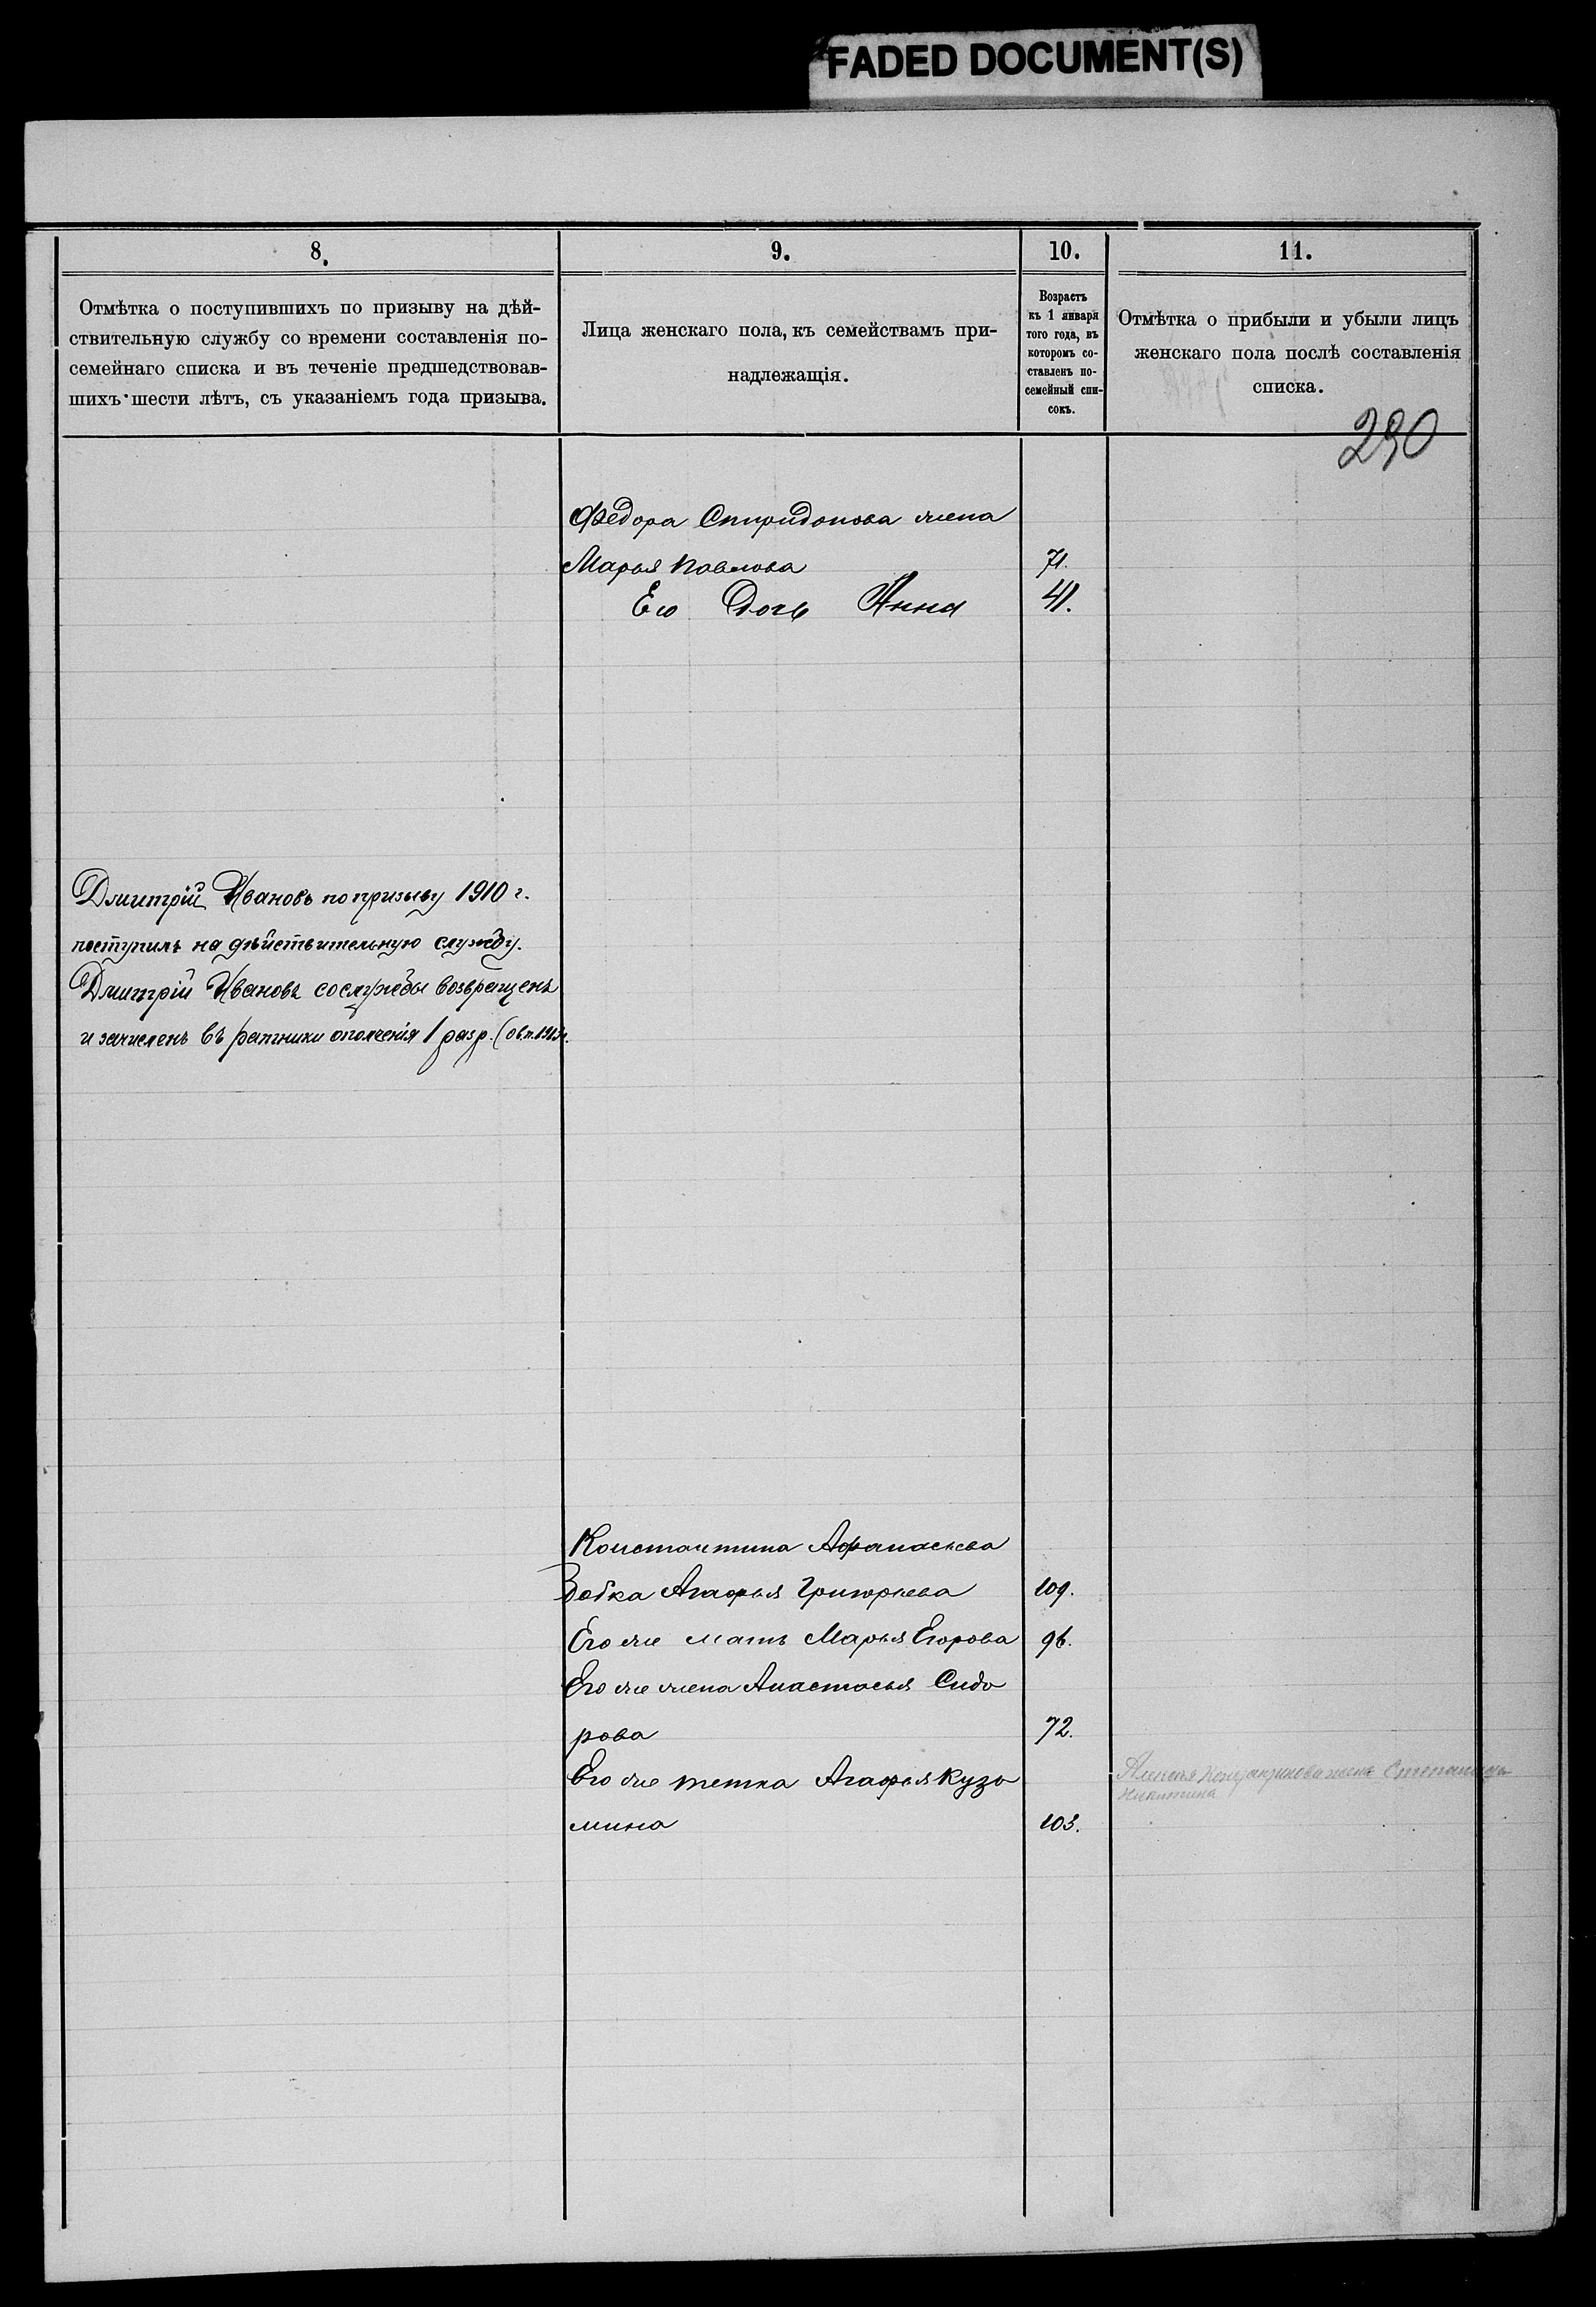 FADED DOCUMENT(S)
8.
9.
10.
11.
Отмѣтка о поступившихъ по призыву на дѣй-
ствительную службу со времени составленія по-
семейнаго списка и въ теченіе предшедствовав-
шихъ шести лѣтъ, съ указаніемъ года призыва.
Лица женскаго пола, къ семействамъ при-
надлежащія.
Возрастъ
къ 1 января
того года, въ
которомъ со-
ставленъ по-
семейный спи-
сокъ.
Отмѣтка о прибыли и убыли лицъ
женскаго пола послѣ составленія
списка.
290
Федора Спиридонова жена
Марья Павлова 71.
Его Дочь Анна 41.
Дмитрій Ивановъ по призыву 1910 г.
поступилъ на дѣйствительную службу.
Дмитрій Ивановъ со службы возвращенъ
и зачисленъ въ ратники ополченія 1 разр.
Константина Афанасьева
Бабка Агафья Григорьева 109.
Его же мать Марья Егорова 96.
Его же жена Анастасья Сидо
рова 72.
Его же тетка Агафья Кузь
мина 103.
Алексѣя Константинова жена Степанида
Никитина